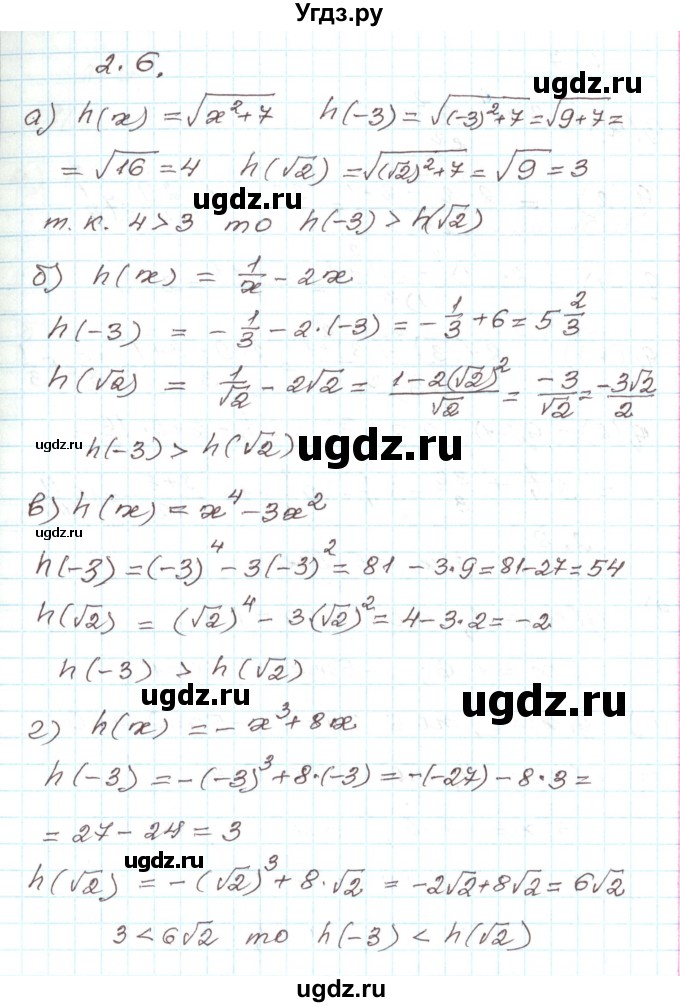 Угдз.ру
2.6.
ugdz.ru
а) h(x) = √(x²+7)   h(-3) = √((-3)²+7) = √(9+7) =
= √16 = 4   h(√2) = √((√2)²+7) = √9 = 3
ugdz.ru
т.к. 4>3 то h(-3) > h(√2)
б) h(x) = 1/x - 2x
h(-3) = -1/3 - 2·(-3) = -1/3 + 6 = 5 2/3
h(√2) = 1/√2 - 2√2 = (1-2(√2)²)/√2 = -3/√2 = -3√2/2
ugdz.ru
h(-3) > h(√2)
ugdz.ru
в) h(x) = x⁴ - 3x²
ugdz.ru
h(-3) = (-3)⁴ - 3(-3)² = 81 - 3·9 = 81-27 = 54
h(√2) = (√2)⁴ - 3·(√2)² = 4-3·2 = -2
h(-3) > h(√2)
ugdz.ru
ugdz.ru
г) h(x) = -x³ + 8x
h(-3) = -(-3)³ + 8·(-3) = -(-27) - 8·3 =
= 27 - 24 = 3
ugdz.ru
h(√2) = -(√2)³ + 8·√2 = -2√2+8√2 = 6√2
3 < 6√2 то h(-3) < h(√2)
ugdz.ru